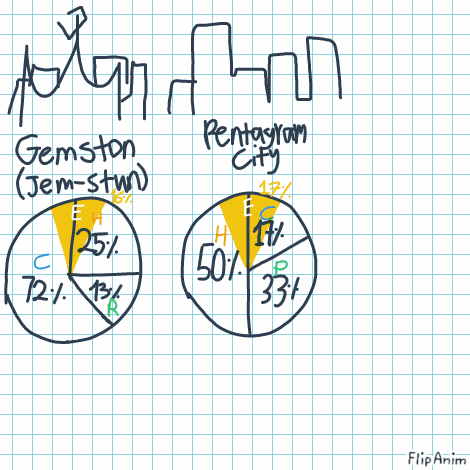 Gemston
(Jem-stun)
15%
E
H
25%
C
72%
13%
R
Pentagram
City
17%
E
C
H
17%
50%
P
33%
FlipAnim